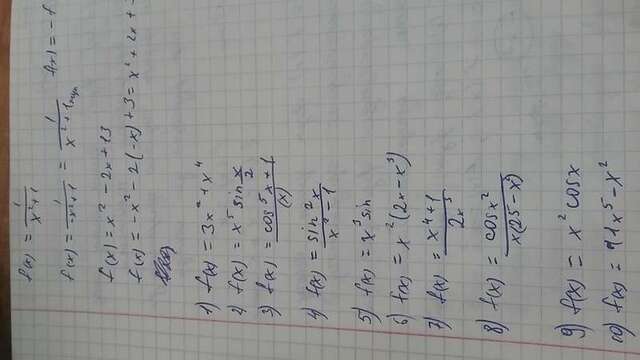 f(x) = 1/(x²+1)
f(x) = 1/(-x²+1) = 1/(x²+1) f(x) = -f
f(x) = x² - 2x + 13
f(x) = -x² - 2(-x) + 3 = x² + 2x +
1) f(x) = 3x² + x⁴
2) f(x) = x⁵ sin x/2
3) f(x) = (cos⁵x + 1)/(x)
4) f(x) = sin²x/(x² - 1)
5) f(x) = x³ sin
6) f(x) = x²(2x - x³)
7) f(x) = (x⁴ + 1)/2x³
8) f(x) = cosx²/x(25 - x²)
9) f(x) = x² cosx
10) f(x) = 11x⁵ - x²